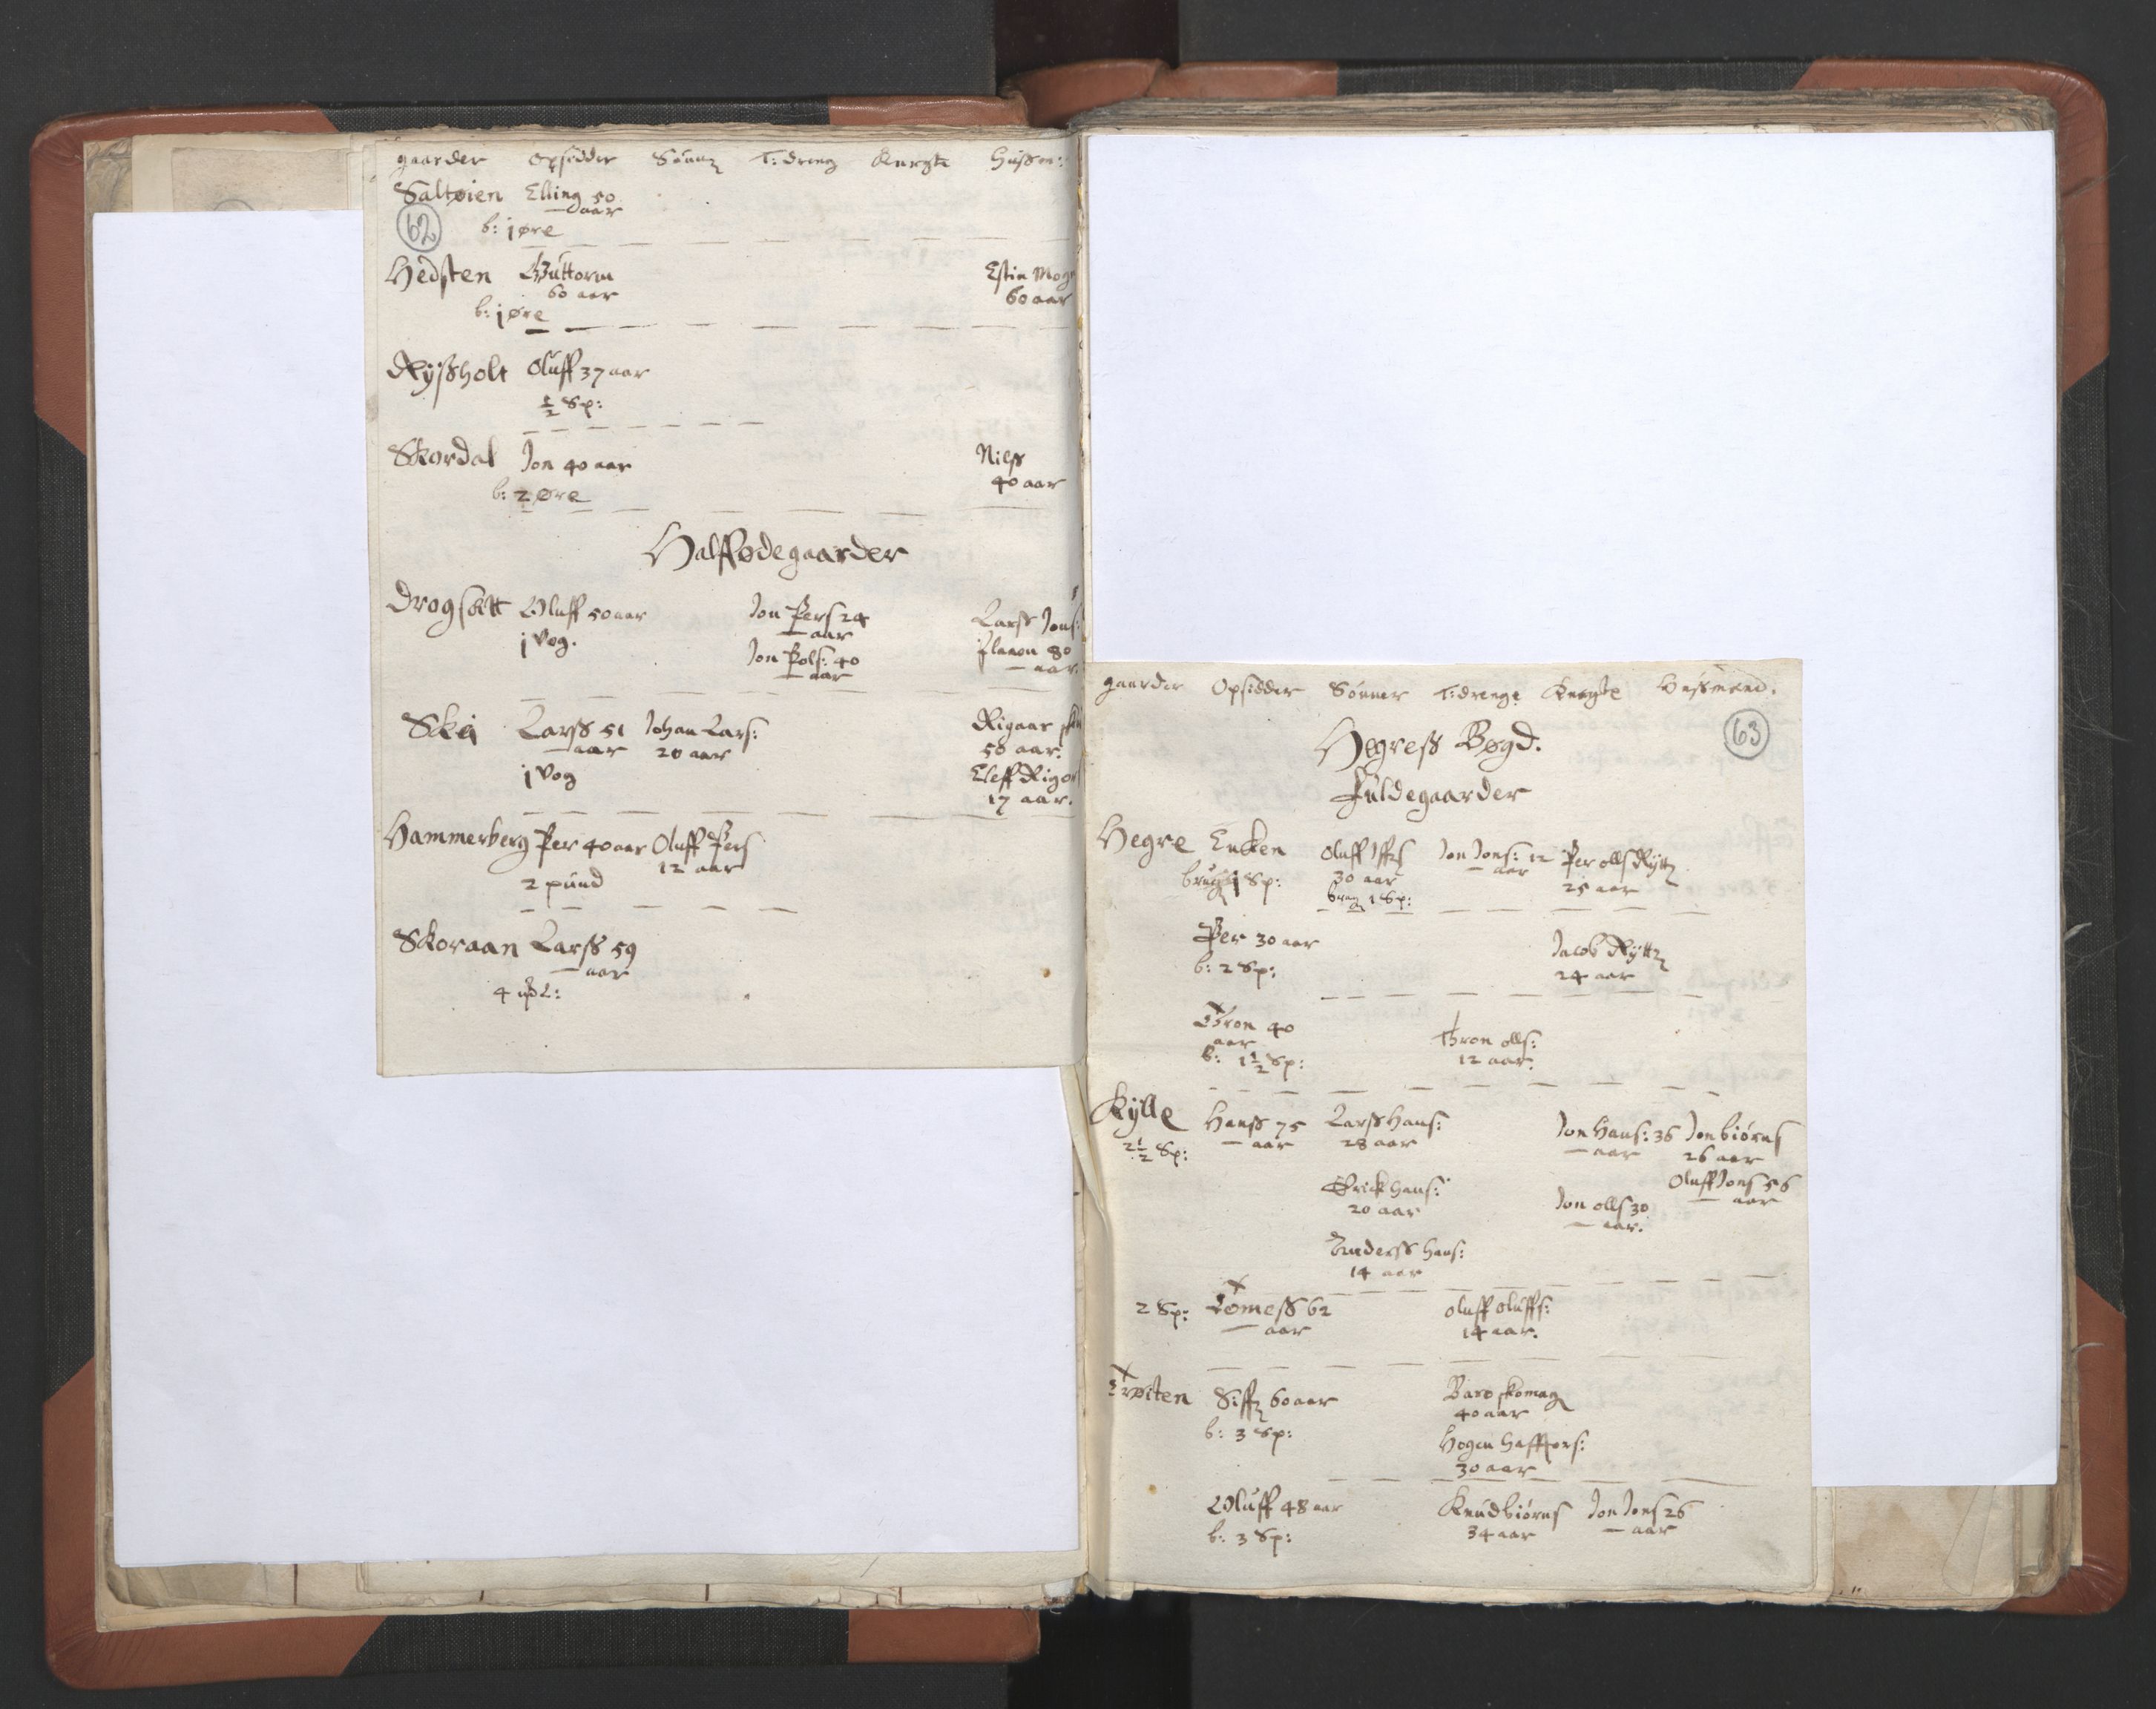 gaarder opsidder Sönner T: dreng Knegte Hußm:
Saltøien Elling 50
aar
62
b: j øre
Hedsten Guttorm Estin Mog
60 aar 60 aar
b: j øre
Ryßholt Oluff 37 aar
½ Sp:
Skordal Jon 40 aar Nilß
40 aar
b: 2 Øre
Halffødegaarder
Drogsett Oluff 50 aar Jon Pers 24 Larß Jons:
aar
j Vog. Jon Pols: 40 80
aar aar
Skei Larß 51 Johan Lars: Rigaar
aar 20 aar 50 aar.
j Vog Eleff Rigor
17 aar.
Hammerberg Per 40 aar Oluff Pers
12 aar
2 pund
Skoraan Larß 59
aar
4
gaarder Opsidder Sönner T: drenge Knegte Hußmend.
63
Hegreß Bøgd.
Fuldegaarder
Hegre Encken Oluff Jon Jons: 12 Per olls Rytt
aar
brug 1 Sp: 30 aar 25 aar
brug 1 Sp:
Per 30 aar Jacob Rytt
b: 2 Sp: 24 aar
Thron 40 Thron olls:
aar 12 aar.
b: 1½ Sp:
Kylle Hanß 75 Larß Hans: Jon Hans: 36 Jon biørns
2½ Sp: aar 28 aar aar 26 aar
Erick Hans: Oluff Jons 56
20 aar Jon olls 30 aar
aar.
Anderß Hans:
14 aar
2 Sp: Tomeß 62 oluff oluffs:
aar 14 aar.
Trøiten Siff 60 aar Baro skomag
40 aar
b: 3 Sp: Hogen Haffters:
30 aar
Oluff 48 aar Knud biørns Jon Jons 26
b: 3 Sp: 34 aar aar